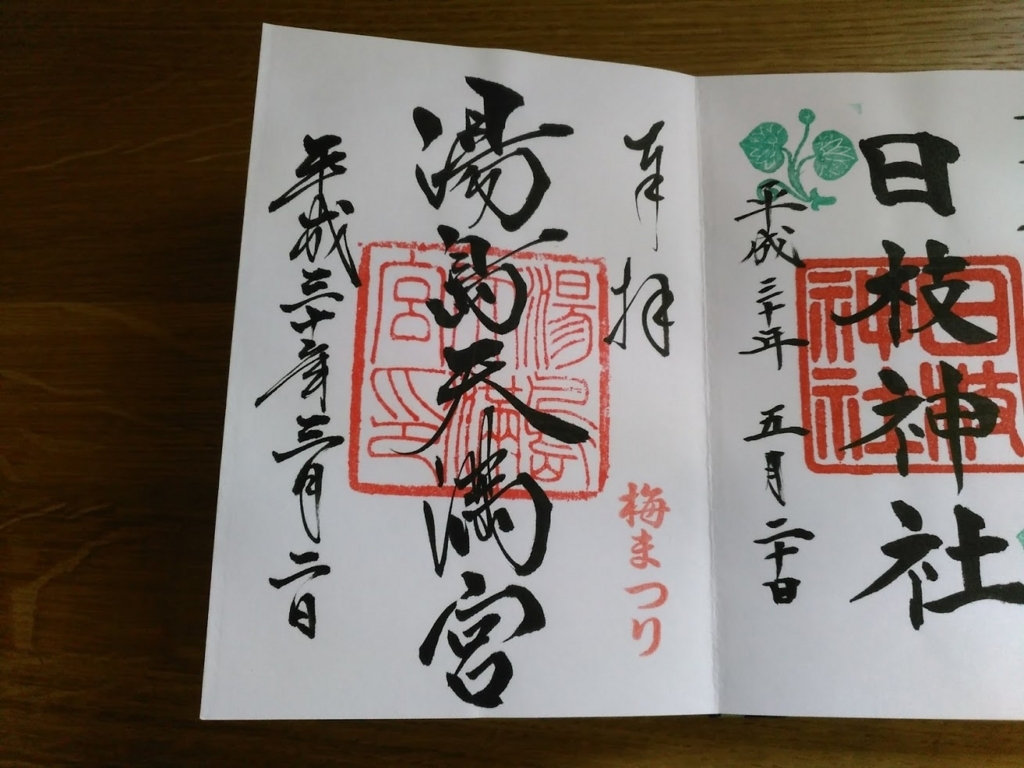 日枝神社
日枝神社
平成三十年 五月二十日
奉拝
梅まつり
湯島天満宮
湯島天満宮印
平成三十年三月二日